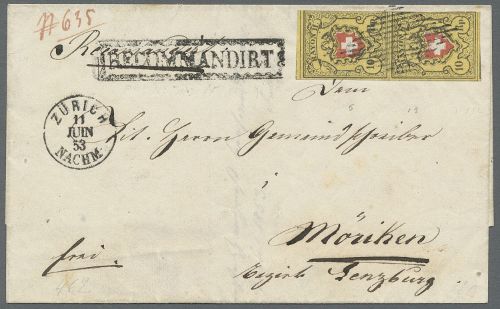 # 635
Recomandirt
RECOMMANDIRT
RAYON. II. 10
10
ZÜRICH
11
JUIN
53
NACHM.
Dem
Tit. Herrn Gemeindschreiber
i
Möriken
Bezirk Lenzburg
frei.